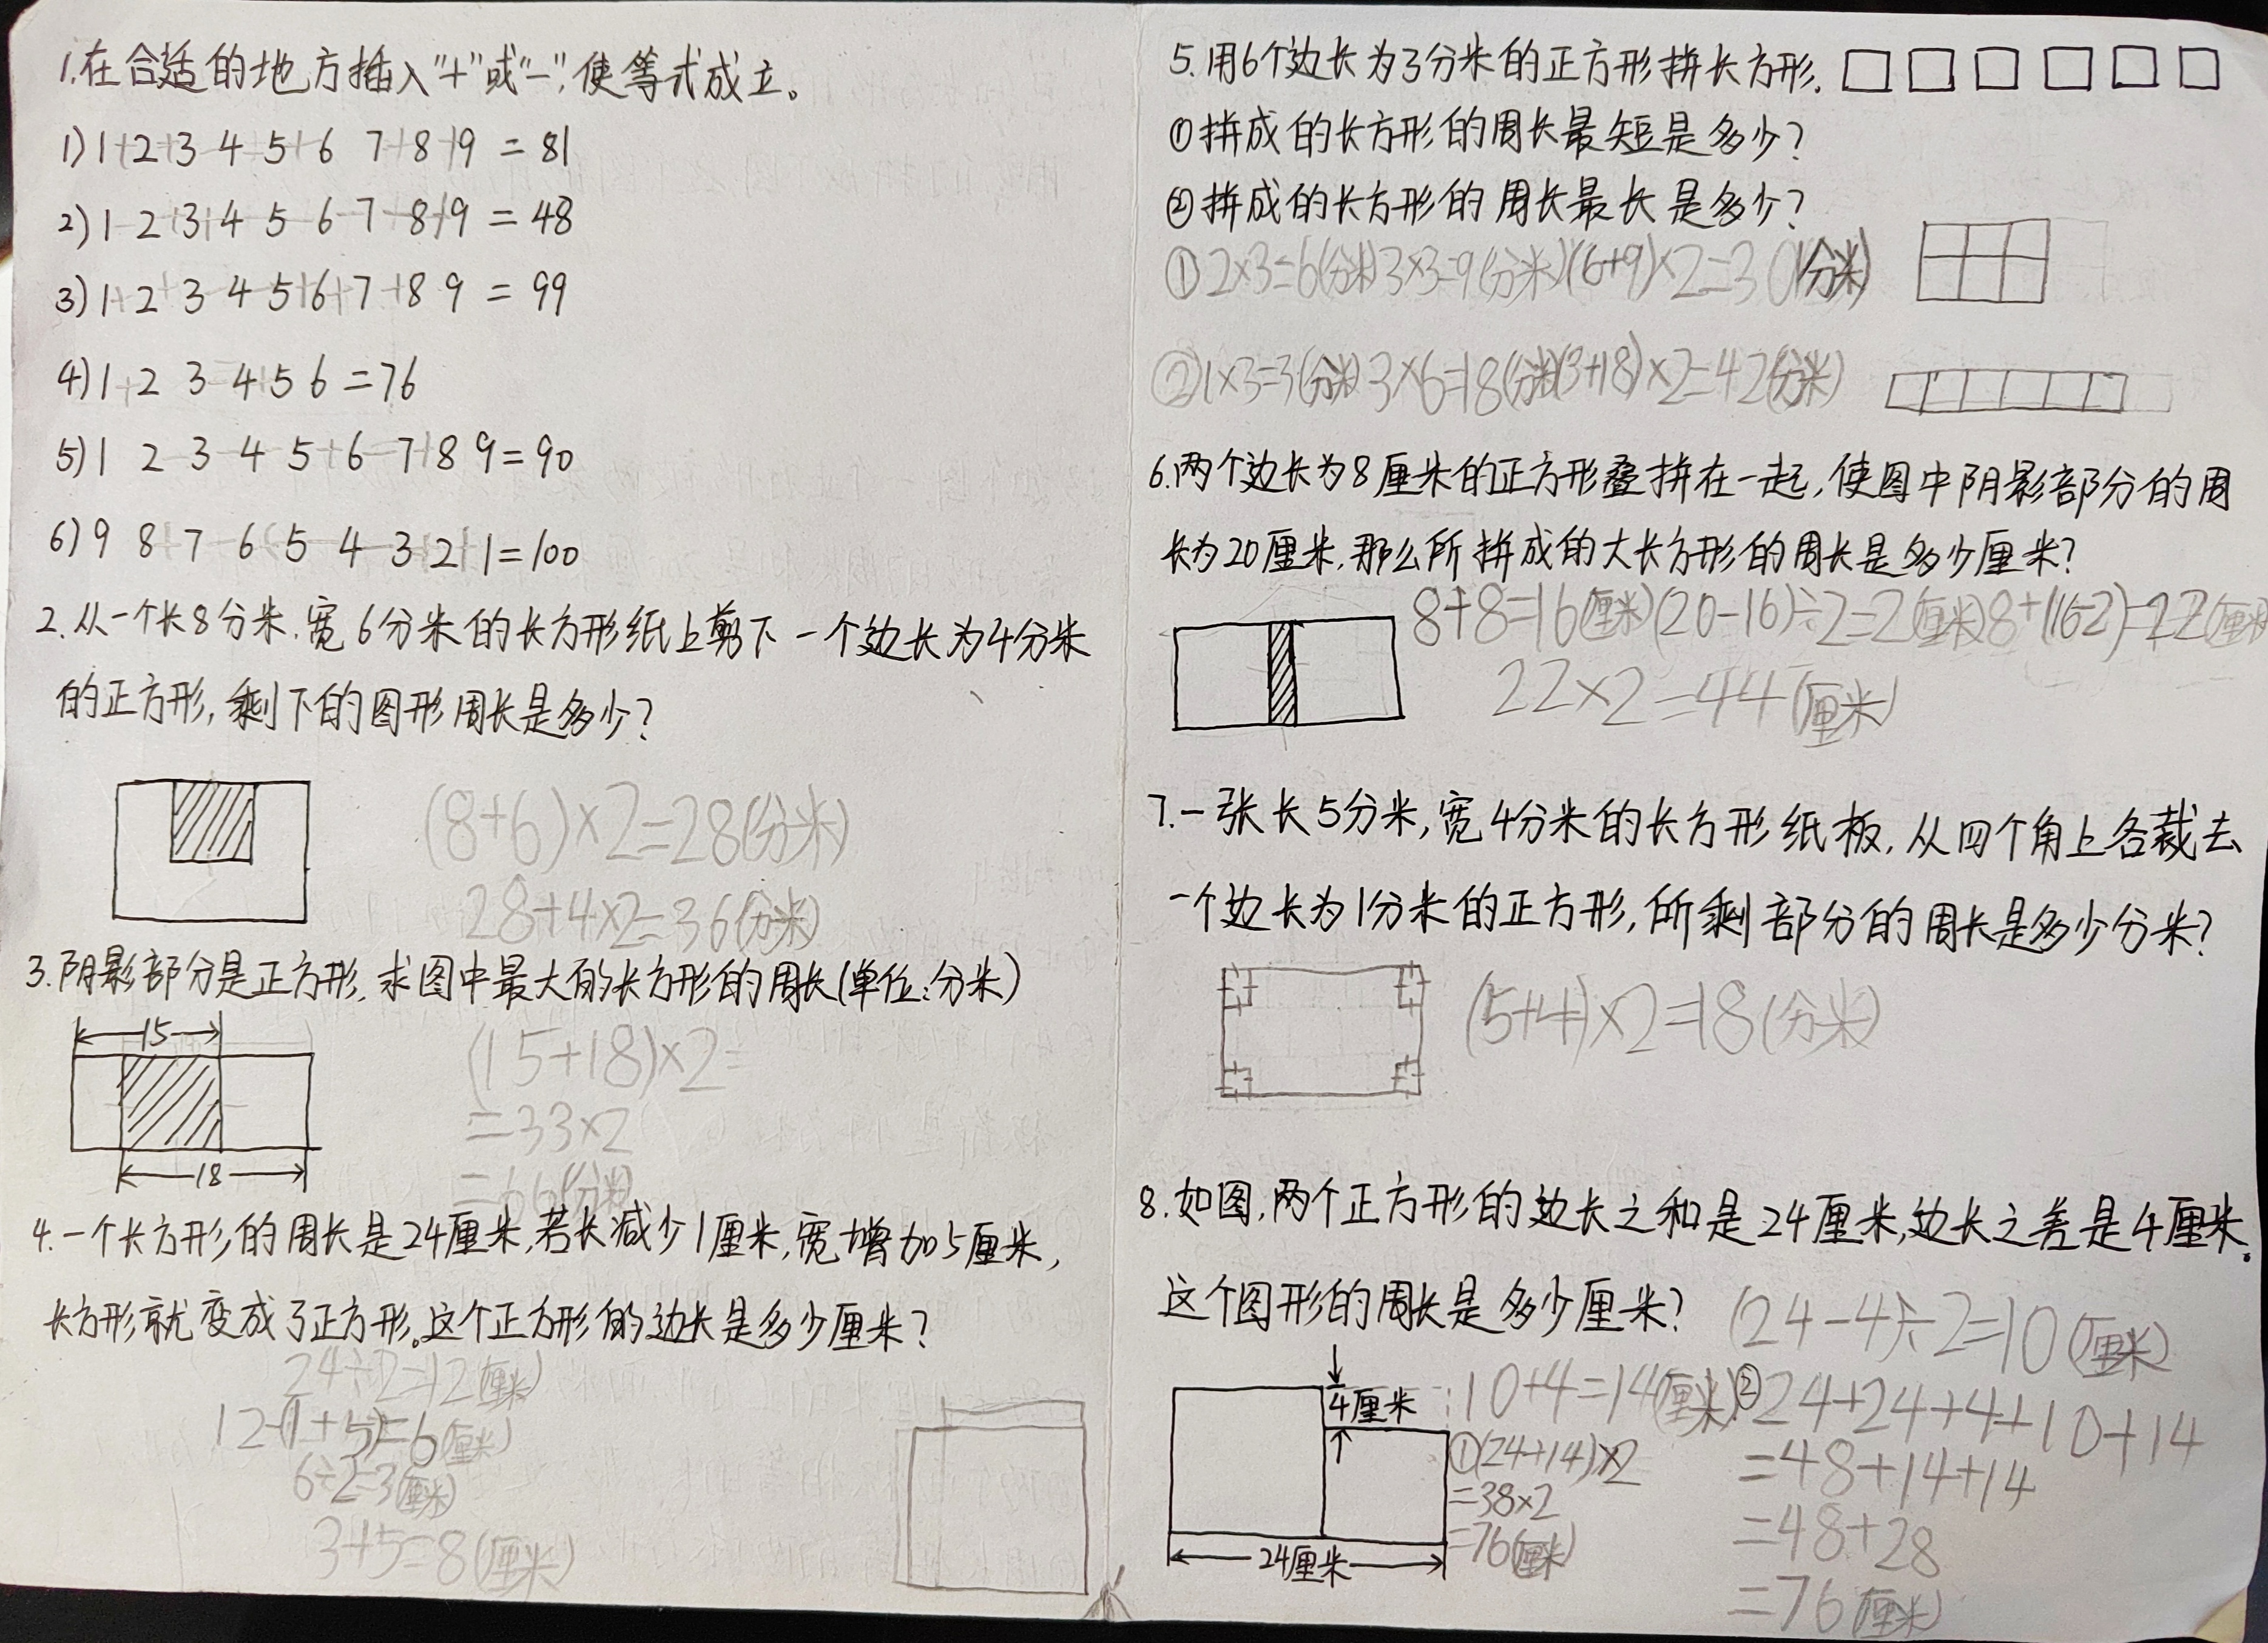 1.在合适的地方插入"+"或"-",使等式成立。
1) 1+2+3 4 5+6 7+8+9 = 81
2) 1 2+3+4 5 6-7 8+9 = 48
3) 1+2+3 4 5+6+7+8 9 = 99
4) 1+2 3 4+5 6 = 76
5) 1 2-3-4 5+6-7+8 9 = 90
6) 9 8+7-6 5-4-3+2+1 = 100
2.从一个长8分米.宽6分米的长方形纸上剪下一个边长为4分米
的正方形,剩下的图形周长是多少?
(8+6)×2=28(分米)
28+4×2=36(分米)
3.阴影部分是正方形,求图中最大的长方形的周长(单位:分米)
15
18
(15+18)×2=
=33×2
=66(分米)
4.一个长方形的周长是24厘米,若长减少1厘米,宽增加5厘米,
长方形就变成了正方形。这个正方形的边长是多少厘米?
24÷2=12(厘米)
12-(1+5)=6(厘米)
6÷2=3(厘米)
3+5=8(厘米)
5.用6个边长为3分米的正方形拼长方形.
①拼成的长方形的周长最短是多少?
②拼成的长方形的周长最长是多少?
①2×3=6(分米)3×3=9(分米)(6+9)×2=30(分米)
②1×3=3(分米)3×6=18(分米)(3+18)×2=42(分米)
6.两个边长为8厘米的正方形叠拼在一起,使图中阴影部分的周
长为20厘米,那么所拼成的大长方形的周长是多少厘米?
8+8=16(厘米)(20-16)÷2=2(厘米)8+(16-2)=22(厘米)
22×2=44(厘米)
7.一张长5分米,宽4分米的长方形纸板,从四个角上各裁去
一个边长为1分米的正方形,所剩部分的周长是多少分米?
(5+4)×2=18(分米)
8.如图,两个正方形的边长之和是24厘米,边长之差是4厘米。
这个图形的周长是多少厘米?
(24-4)÷2=10(厘米)
4厘米
24厘米
10+4=14(厘米)
①(24+14)×2
=38×2
=76(厘米)
②24+24+4+10+14
=48+14+14
=48+28
=76(厘米)